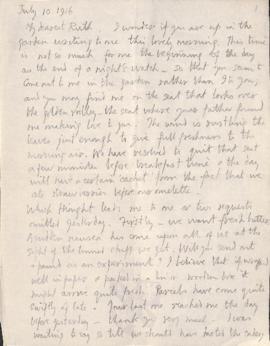 July 10. 1916
My dearest Ruth I wonder if you are up in the
garden writing to me this lovely morning. This time
is not so much for me the beginning of the day
as the end of a night's watch. So that you seem to
come out to me in the garden rather than I to you;
and you may find me on the seat that looks over
the valley – the seat where your father found
me making love to you. The wind is rustling the
leaves just enough to give full freshness to the
morning air. We have resolved to quit that seat
a few minutes before breakfast time & the day
will have a certain cachet from the fact that we
ate strawberries before our omelette
Which thought leads me to one or two requests
omitted yesterday. Firstly – we want fresh butter
nausea has come upon all of us at the
sight of the tinned stuff we get. Will you send out
a pound as an experiment? I believe that if wrapped
well in paper & packed in a tin or wooden box it
might arrive quite fresh. Parcels have come quite
swiftly of late. Your last one reached me the day
before yesterday – thank you very much – I was
waiting to say so till we should have tasted the cakes